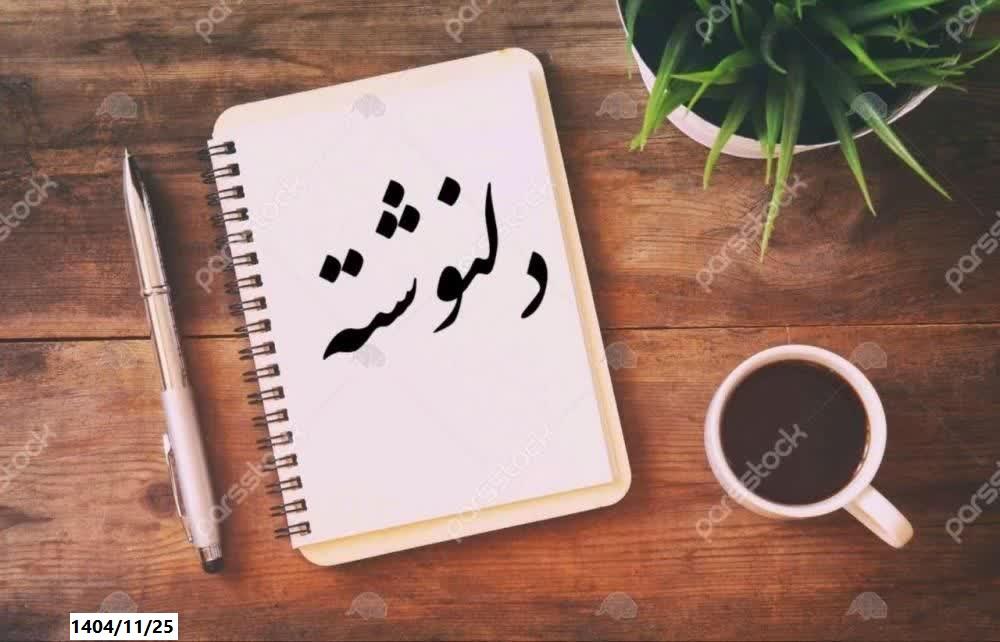 دلنوشته
1404/11/25
parsstock